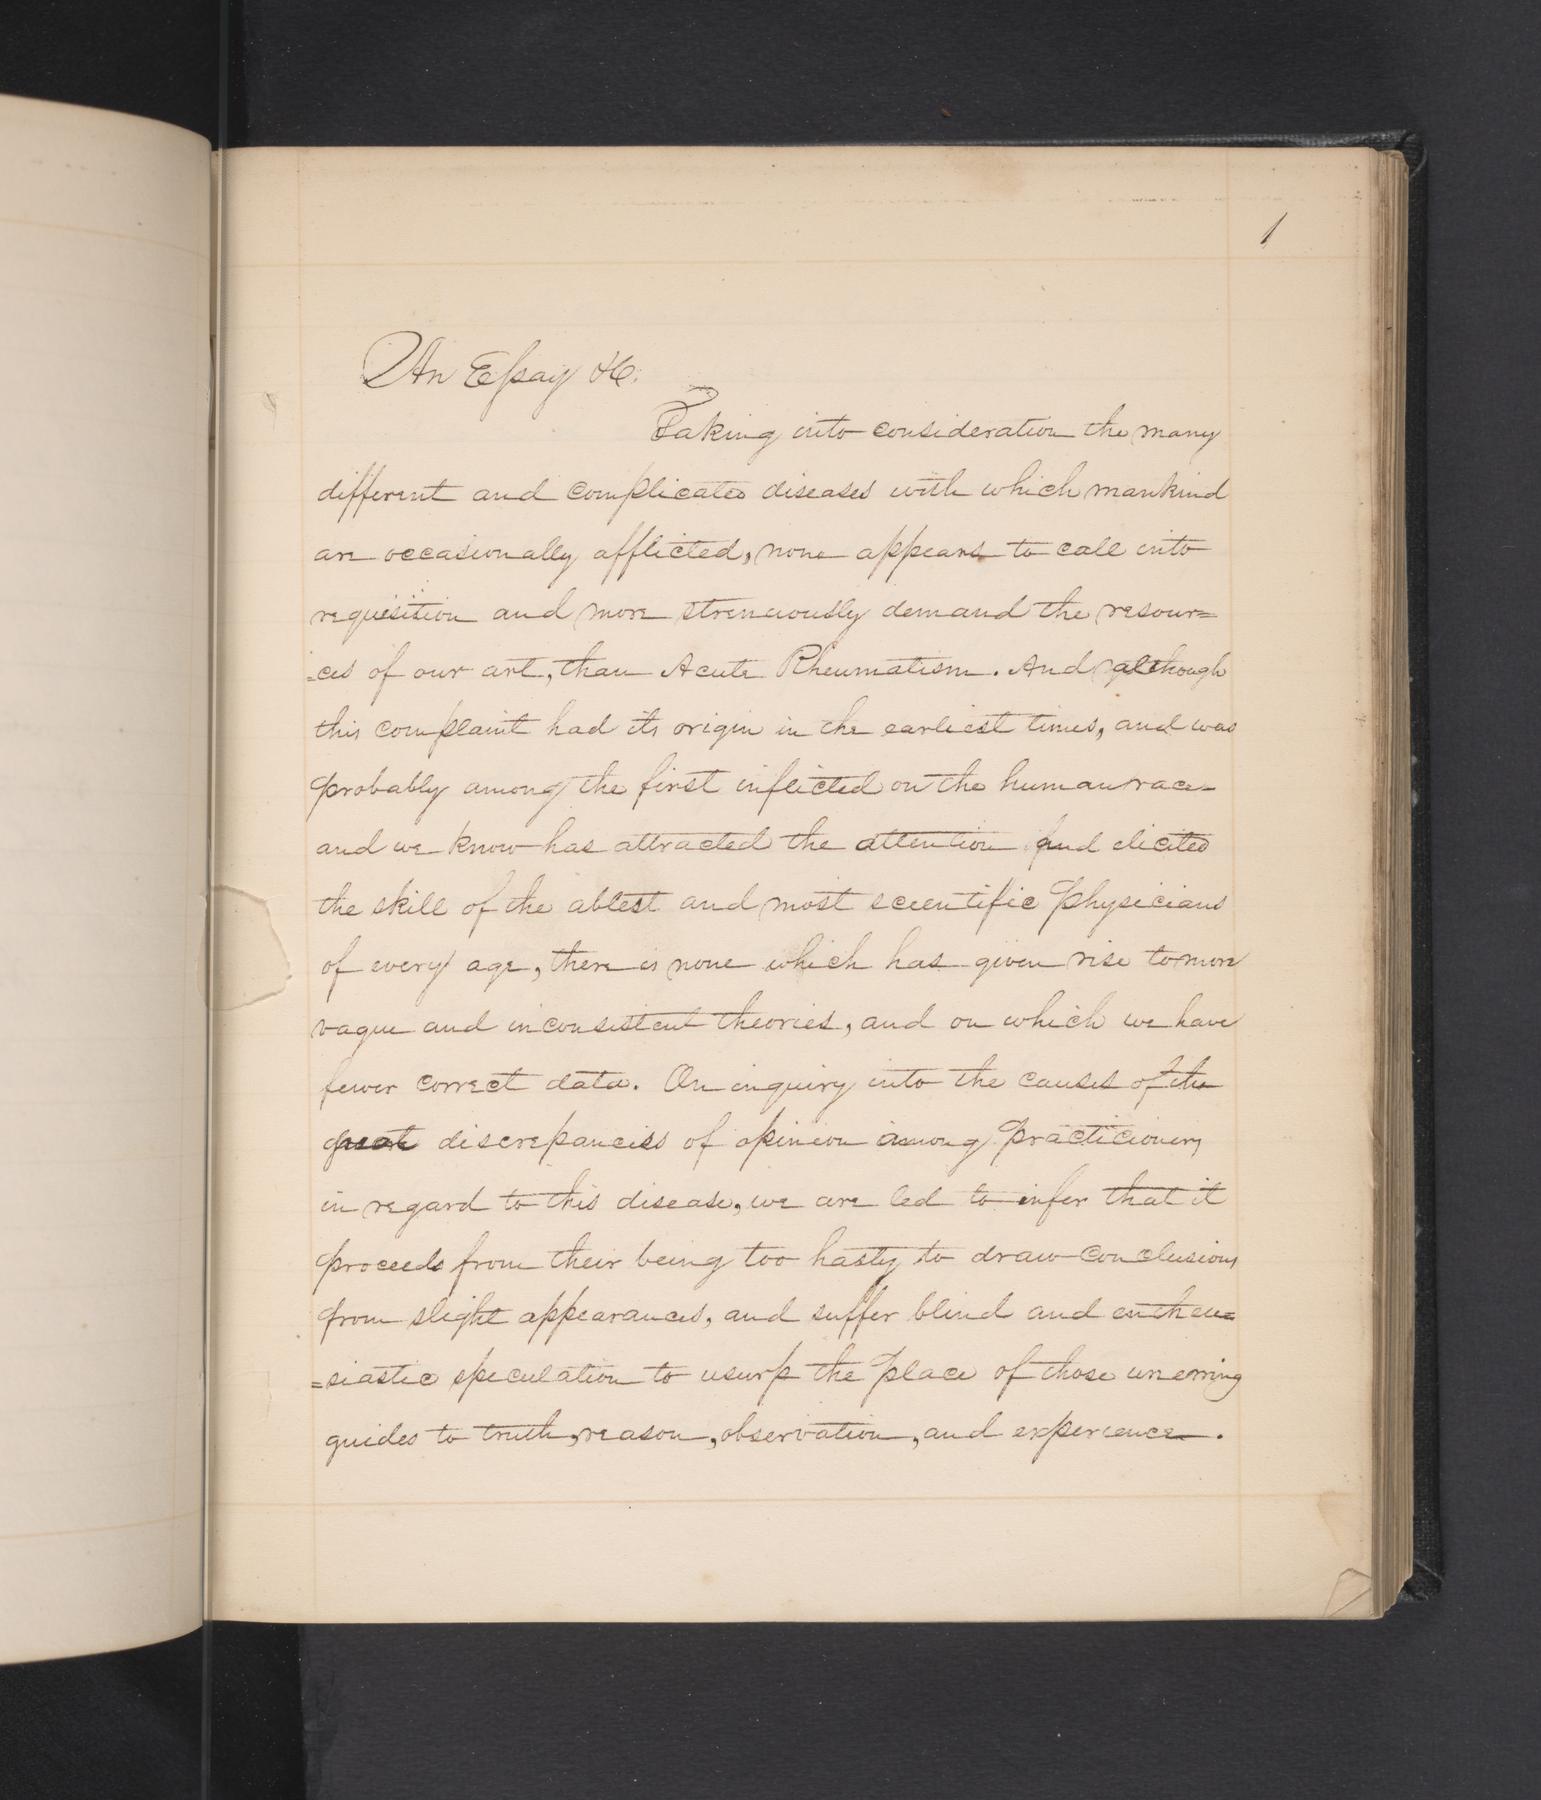 1
An Essay &c.
Taking into consideration the many
different and complicated diseases with which mankind
are occasionally afflicted, none appears to call into
requisition and more strenuously demand the resour=
=ces of our art, than Acute Rheumatism. And although
this complaint had its origin in the earliest times, and was
probably among the first inflicted on the human race
and we know has attracted the attention and elicited
the skill of the ablest and most scientific Physicians
of every age, there is none which has given rise to more
vague and inconsistent theories, and on which we have
fewer correct data. On inquiry into the causes of the
great discrepancies of opinion among practicioners
in regard to this disease, we are led to infer that it
proceeds from their being too hasty to draw conclusions
from slight appearances, and suffer blind and entheu=
=siastic speculation to usurp the place of those unerring
guides to truth, reason, observation, and experience.